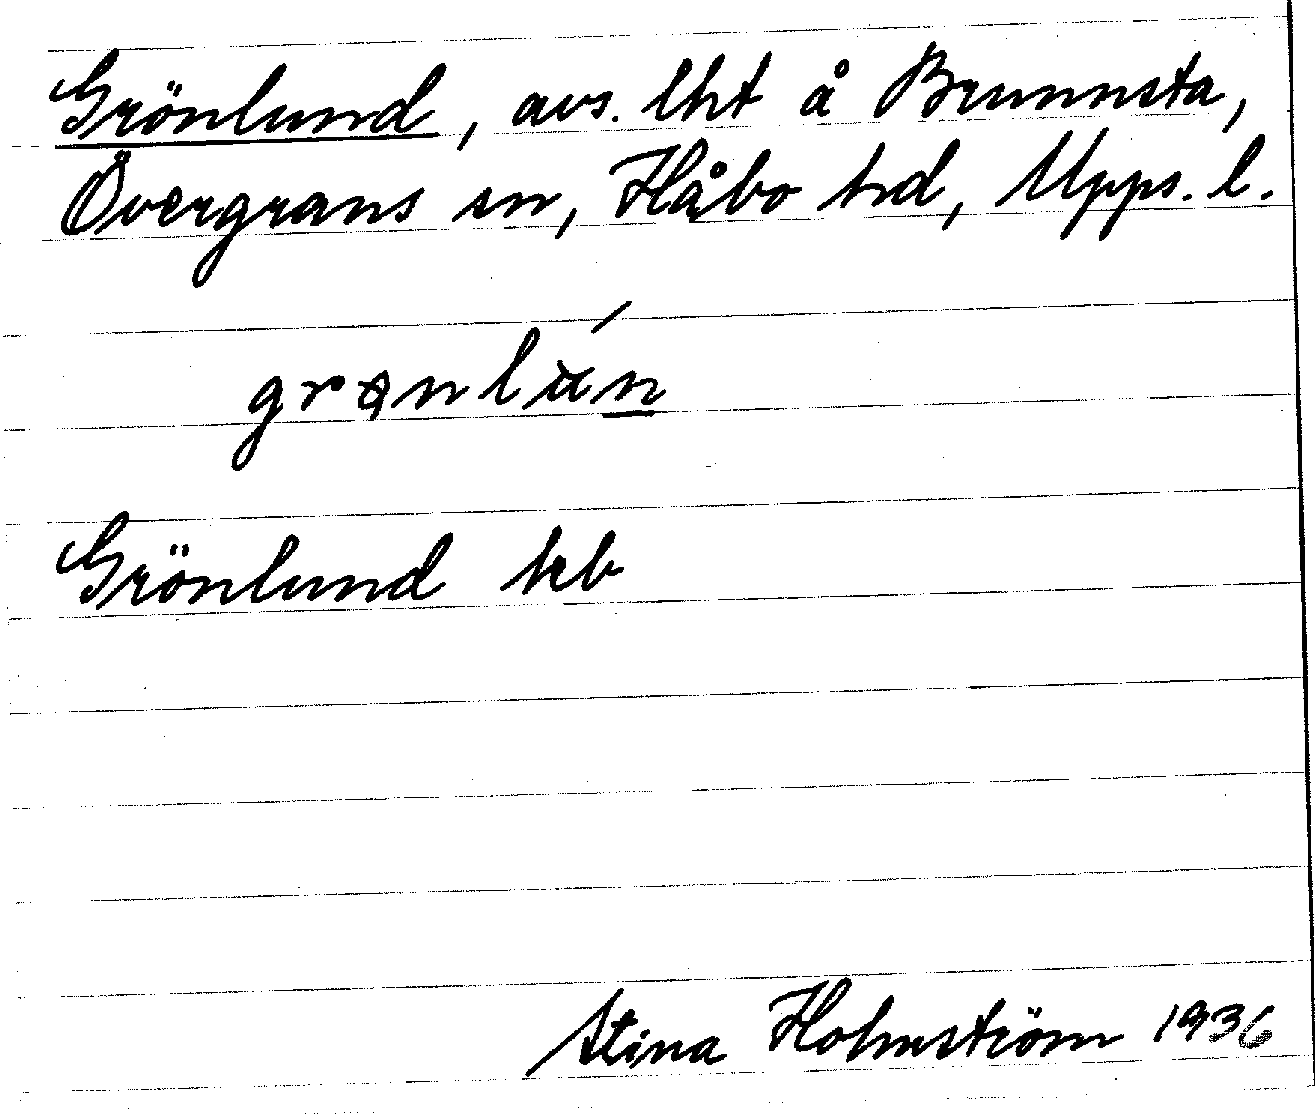 Grönlund, avs. lht å Brunnsta,
Övergrans sn, Håbo hd, Upps. l.
Grönlund hrb
Stina Holmström 1936